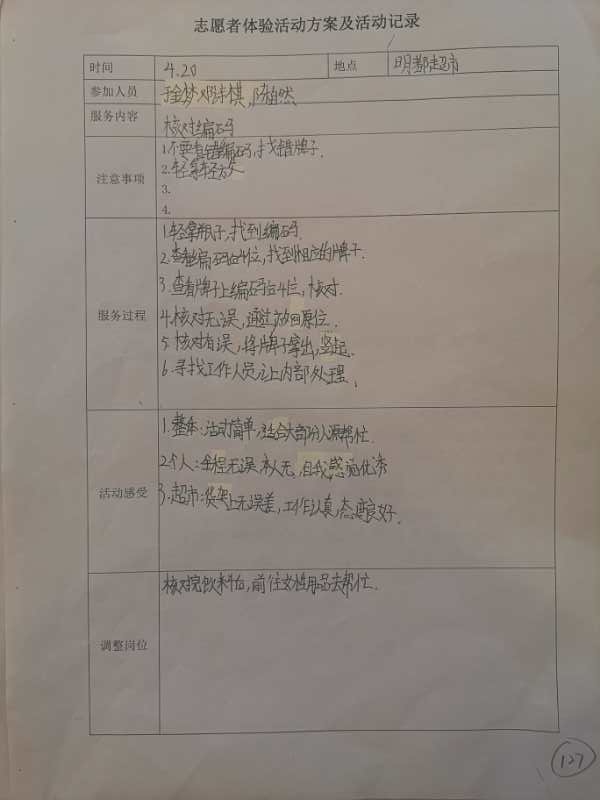 志愿者体验活动方案及活动记录
时间 4.20 地点 明都超市
参加人员 于金梦 邓诗棋，陈柏然
服务内容 核对编码
注意事项
1.不要看错编码，找错牌子.
2.轻拿轻放
3.
4.
服务过程
1.轻拿瓶子，找到编码.
2.查看编码后4位，找到相应的牌子.
3.查看牌子上编码后4位，核对.
4.核对无误，通过放回原位.
5.核对有误，将牌子拿出，竖起.
6.寻找工作人员，让内部处理.
活动感受
1.整体：活动简单，适合大部分人源帮忙.
2.个人：全程无误，自我感觉优秀
3.超市：货架上无误差，工作认真，态度良好.
调整岗位
核对完饮料后，前往文性用品去帮忙.
127